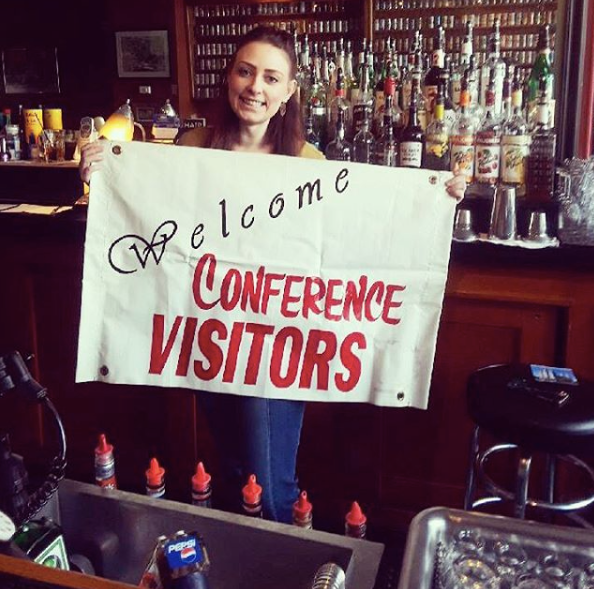 Welcome
CONFERENCE
VISITORS
PEPSI